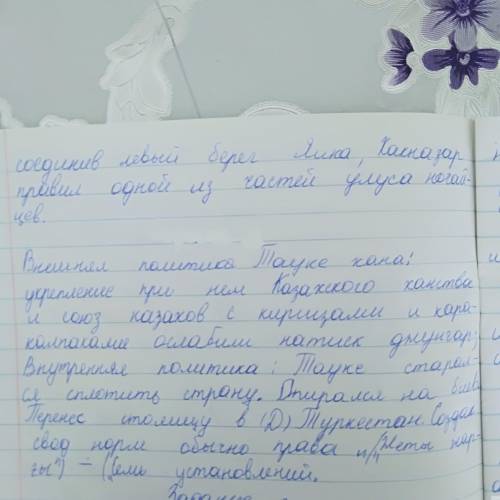 соединив левый берег Яика, Хакназар
правил одной из частей улуса ногай-
цев.
Внешняя политика Тауке хана:
укрепление при нем Казахского ханства
и союз казахов с киргизами и кара-
калпаками ослабили натиск джунгар.
Внутренняя политика: Тауке старал-
ся сплотить страну. Опирался на биев.
Перенес столицу в (D) Туркестан. Создал
свод норм обычно права "Жеты жар-
гы") – (семь установлений.
Задание